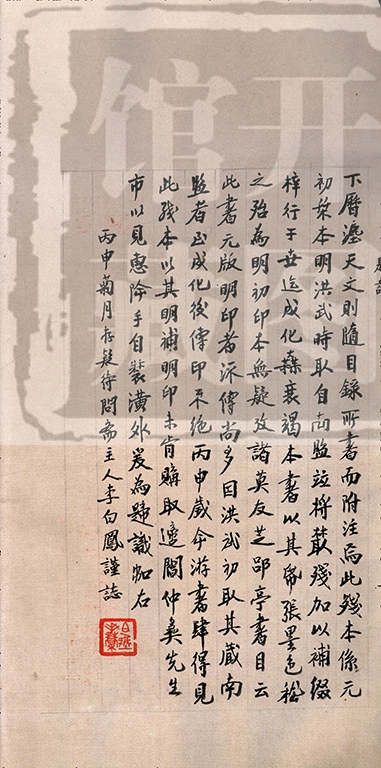 下曆 天文則隨目錄所書而附注焉此殘本係元
初槧本明洪武時取自南監竝將散殘加以補綴
梓行于世迄成化 本書以其帋張墨色 
之殆為明初印本無疑攷諸莫友芝郘亭書目云
此書元版明印者流傳尚多因洪武初取其藏南
監者至成化後傳印不絕丙申歲 游書肆得見
此殘本以其明補明印未肯購取 閻仲彝先生
市以見惠除手自裝潢外爰為題識如右
丙申菊月存疑待問齋主人李白鳳謹誌
开
馆